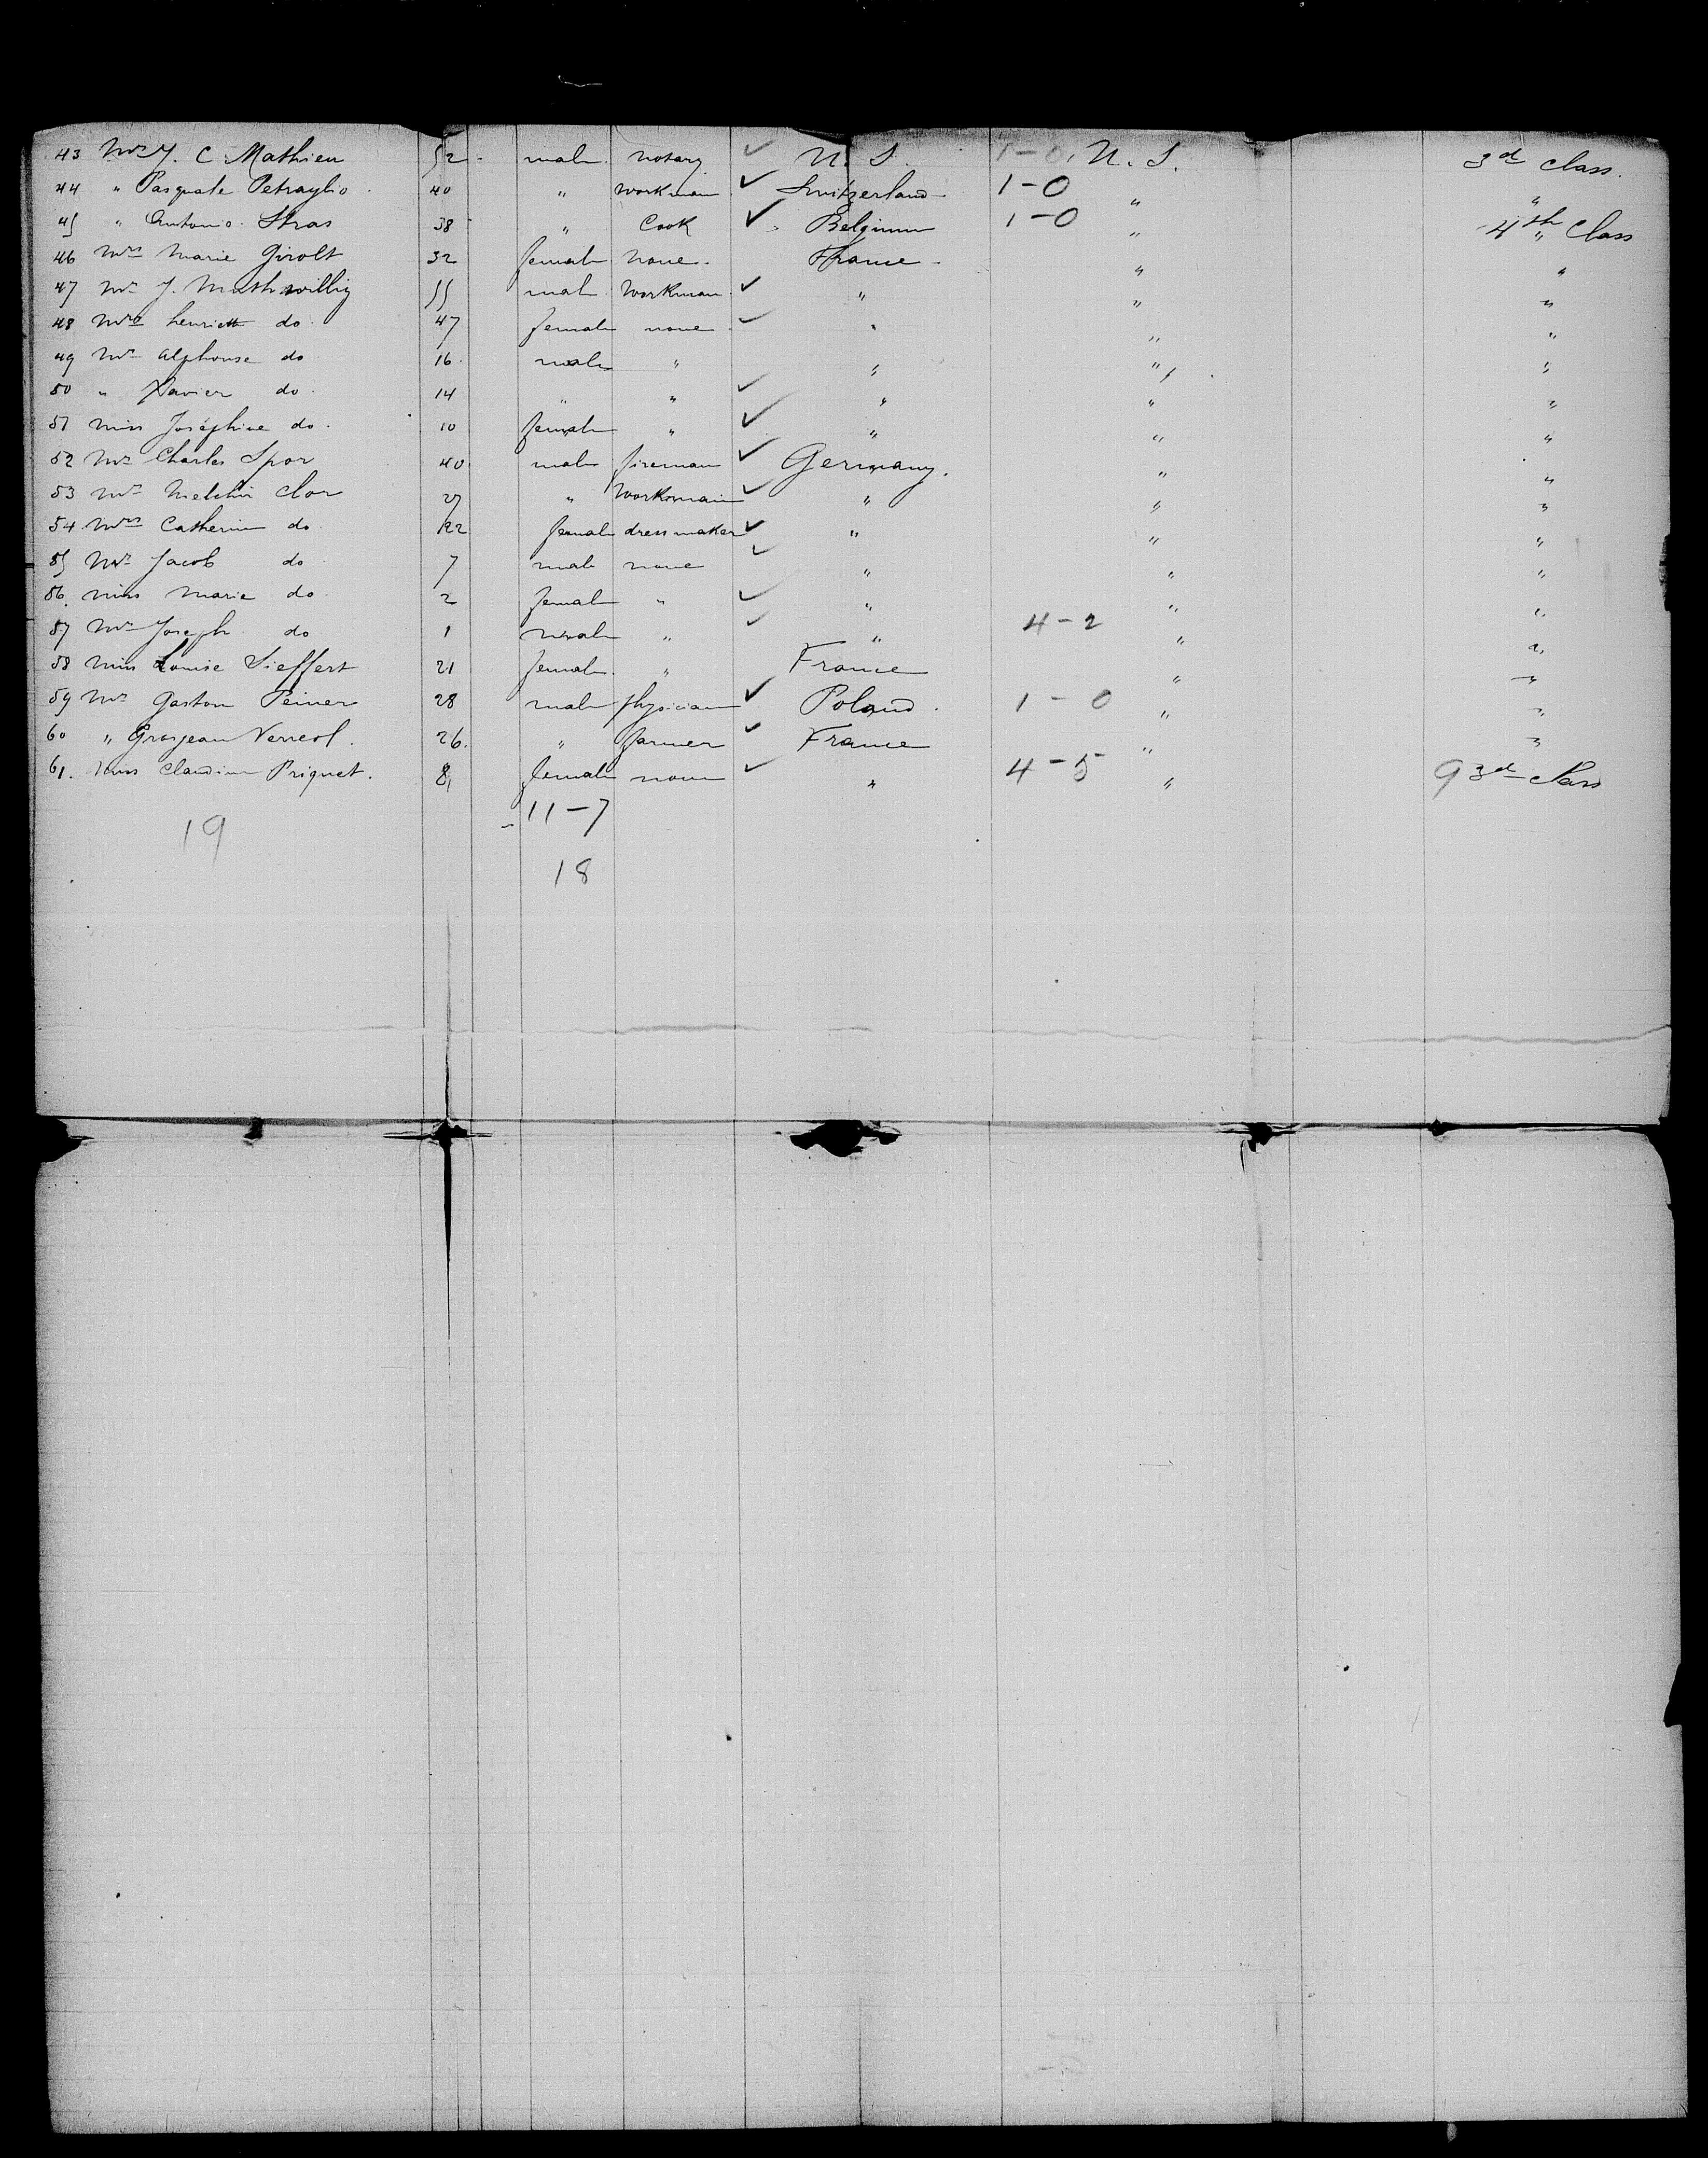 43 Mr J. C. Mathieu 52 male notary ✓ U. S. 1-0 U. S. 3d class.
44 " Pasquale Petraglio 40 " workman ✓ Switzerland 1-0 " "
45 " Antonio Stras 38 " Cook ✓ Belgium 1-0 " 4th " Class
46 Mrs Marie Girolt 32 female none France " "
47 Mr J. Mathwillig 55 male Workman ✓ " " "
48 Mrs henriette do 47 female none ✓ " " "
49 Mr Alphonse do 16 male " " " "
50 " Xavier do 14 " " ✓ " " "
51 miss Joséphine do. 10 female " ✓ " " "
52 Mr Charles Spor 40 male fireman ✓ Germany. " "
53 Mr Melchir Clor 27 " Workman ✓ " " "
54 Mrs Catherine do 22 female dressmaker ✓ " " "
55 Mr Jacob do 7 male none ✓ " " "
56 miss Marie do 2 female " ✓ " " "
57 Mr Joseph do 1 male " ✓ " 4-2 " "
58 Miss Louise Sieffert 21 female " France " "
59 Mr Gaston Peiner 28 male physician ✓ Poland. 1-0 " "
60 " Grosjean Verreol. 26. " farmer ✓ France " "
61. Miss Claudine Priquet. 8 female none ✓ " 4-5 " 9 3d class
11-7
19
18